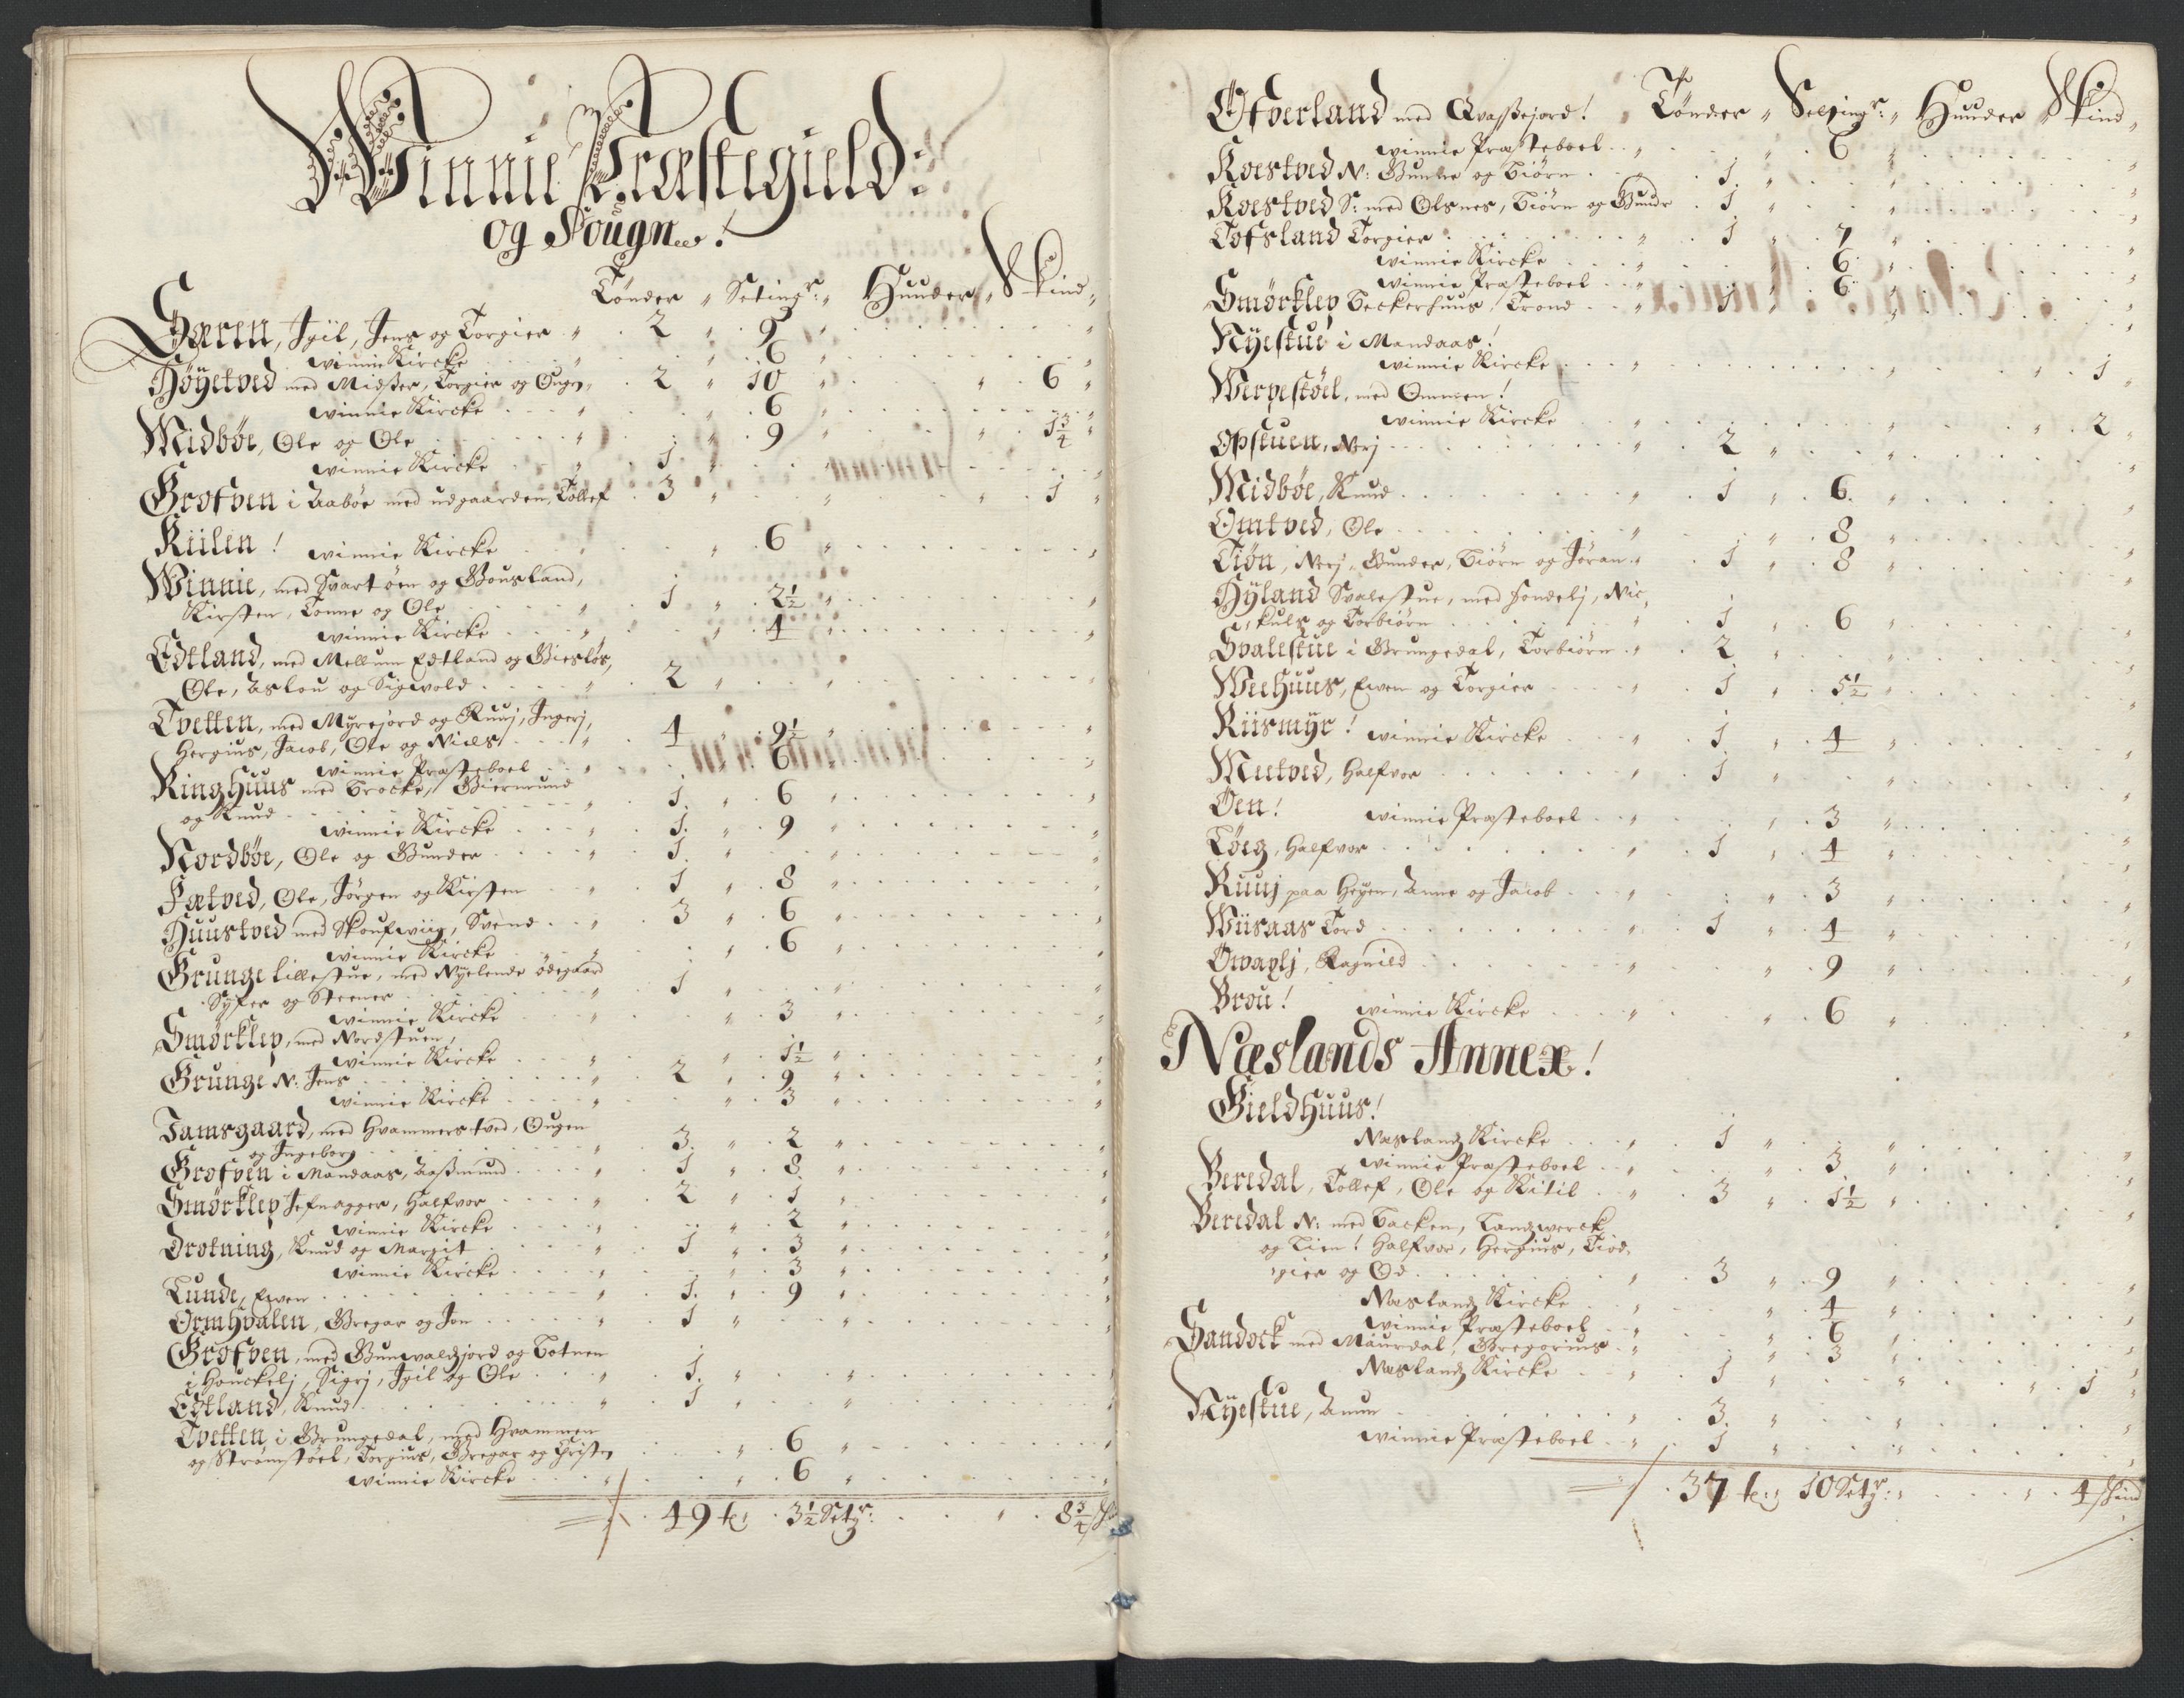 Winnie Præstegield:
og Sougn!
Tønder " Setingr: " Huuder " Skind "
Særen, Igil, Jens og Torgier " 2 " 9 " "
winnie Kircke " " 6 " "
Høyetved med Midster, Torgier og Ougn, 2 " 10 " " 6 "
winnie Kircke " " 6 " "
Midbøe, Ole og Ole " " 9 " " 1 3/4 "
winnie Kircke " 1 " " "
Grofven i Aabøe med udgaarden, Tollef 3 " " " 1 "
Kiilen! winnie Kircke " " 6 " "
Winnie, med Svartøen og Gousland,
Kirsten, Tonne og Ole " 1 " 2 1/2 " "
winnie Kircke " " 4 " "
Edtland, med Mellum Edtland og Biesløs,
Ole, Aslou og Sigvold " 2 " " "
Tvetten, med Myrejord og Ruuj, Ingerj,
Hergius, Jacob, Ole og Niels " 4 " 9 1/2 " "
winnie Præsteboel " " 6 " "
Ringhuus med Brocke, Giermund
og Knud " 1 " 6 " "
winnie Kircke " 1 " 9 " "
Nordbøe, Ole og Gunder " 1 " " "
Sætved, Ole, Jørgen og Kirsten " 1 " 8 " "
Huustved med Skoufwiig, Svend " 3 " 6 " "
winnie Kircke " " 6 " "
Grunge Lillestue, med Nyelende ødegaard
Syfer og Steener " 1 " " "
winnie Kircke " " 3 " "
Smørklep, med Nordstuen,
winnie Kircke " " 1 1/2 " "
Grunge N: Jens " 2 " 9 " "
winnie Kircke " " 3 " "
Jamsgaard, med Hvammerstved, Ougen
og Ingeborg " 3 " 2 " "
Grofven i Mandaas, Aasmund " 1 " 8 " "
Smørklep Jefnagger, Halfvor " 2 " 1 " "
winnie Kircke " " 2 " "
Drotning, Knud og Margit " 1 " 3 " "
winnie Kircke " " 3 " "
Lunde, Even " 1 " 9 " "
Ormhvalen, Gregar og Jon " 1 " " "
Grofven, med Gunvaldzjord og Botnen
i Houckelj, Sigrj, Igil og Ole " 1 " " "
Edtland, Knud " 1 " " "
Tvetten i Grungedal, med Hvammen
og Strømstøel, Torgius, Gregar og Christen " 6 " "
winnie Kircke " " 6 " "
49 tr 3 1/2 Setgr: " 8 3/4 Sk
Ofverland med Qvassejord! Tønder " Setingr: " Huuder " Skind "
winnie Præsteboel " " 6 " "
Koestved N: Gunder og Biørn " 1 " " "
Koestved S: med Olsnes, Biørn og Gundr 1 " " "
Tofsland Torgier " 1 " 7 " "
winnie Kircke " " 6 " "
winnie Præsteboel " " 6 " "
Smørklep Beckerhuus, Trond " 1 " " "
Nyestue i Mandaas!
winnie Kircke " " " " 1 "
Werpestøel, med Ommen!
winnie Kircke " " " " 2 "
Opstuen, Nerj " 2 " " "
Midbøe, Knud " 1 " 6 " "
Omtved, Ole " " 8 " "
Tiøn, Nerj, Gunder, Biørn og Jøran " 1 " 8 " "
Hyland Svalestue, med Sondelj, Nic,
kuls og Torbiørn " 1 " 6 " "
Svalestue i Grungedal, Torbiørn " 2 " " "
Weehuus, Even og Torgier " 1 " 5 1/2 " "
Riismyr! winnie Kircke " 1 " 4 " "
Meetved, Halfvor " 1 " " "
Øen! winnie Præsteboel " " 3 " "
Løeg, Halfvor " 1 " 4 " "
Ruuj paa Heyen, Anne og Jacob " " 3 " "
Wiisaas Tord " 1 " 4 " "
Øvaplj, Ragnild " " 9 " "
Brou! winnie Kircke " " 6 " "
Næslands Annex!
Gieldhuus!
Næslandz Kircke " 1 " " "
winnie Præsteboel " " 3 " "
Beredal, Tollef, Ole og Kitil " 3 " 1 1/2 " "
Beredal N: med Backen, Langwerck
og Lien! Halfvor, Hergius, Tiod,
gier og Od " 3 " 9 " "
Næslandz Kircke " " 4 " "
winnie Præsteboel " " 6 " "
Sandock med Maurdal, Gregorius " " 3 " "
Næslandz Kircke " 1 " " " 1 "
Nyestue, Anun " 3 " " "
winnie Præsteboel " 1 " " "
37 tr 10 Setgr: " 4 skind